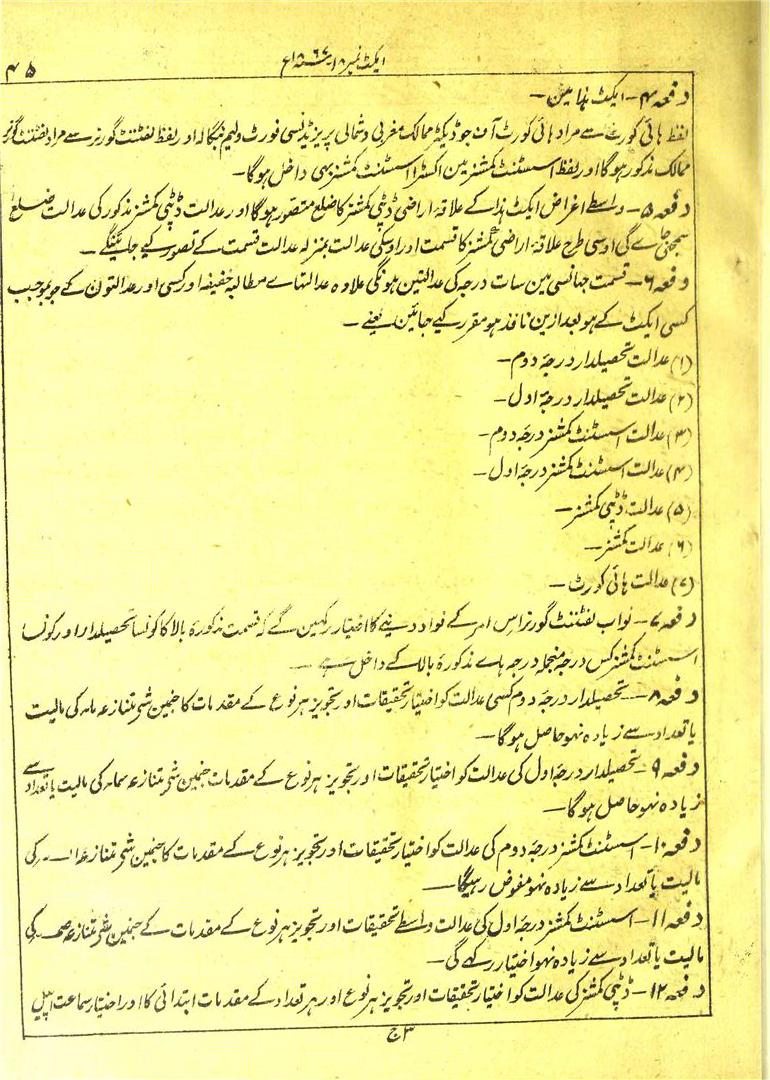 ایکٹ نمبر ۱۸ ۱۸۶۷ع
۴۵
دفعہ ۴— ایکٹ ہذا مین—
لفظ ہائی کورٹ سے مراد ہائی کورٹ آف جوڈیکیچر ممالک مغربی و شمالی پریزیڈنسی فورٹ ولیم بنگالہ اور لفظ لفٹننٹ گورنر سے مراد لفٹننٹ گورنر
ممالک مذکور ہوگا اور لفظ اسسٹنٹ کمشنر مین اکسٹرا اسسٹنٹ کمشنر بہی داخل ہوگا—
دفعہ ۵— واسطے اغراض ایکٹ ہذا کے علاقہ اراضی ڈپٹی کمشنر کا ضلع متصور ہوگا اور عدالت ڈپٹی کمشنر مذکور کی عدالت ضلع
سمجہی جاے گی اوسی طرح علاقہ اراضی کمشنر کا قسمت اور اوسکی عدالت بمنزلہ عدالت قسمت کے تصور کیے جائینگے—
دفعہ ۶— قسمت جہانسی مین سات درجہ کی عدالتین ہونگی علاوہ عدالتہاے مطالبہ خفیفہ اور کسی اور عدالتون کے جو بموجب
کسی ایکٹ کے ہو بعد ازین نافذ ہو مقرر کیے جائین یعنے—
(۱) عدالت تحصیلدار درجہ دوم—
(۲) عدالت تحصیلدار درجہ اول—
(۳) عدالت اسسٹنٹ کمشنر درجہ دوم—
(۴) عدالت اسسٹنٹ کمشنر درجہ اول—
(۵) عدالت ڈپٹی کمشنر—
(۶) عدالت کمشنر—
(۷) عدالت ہائی کورٹ—
دفعہ ۷— نواب لفٹننٹ گورنر اس امر کے قرار دینے کا اختیار رکہین گے کہ قسمت مذکورہ بالا کا کونسا تحصیلدار اور کونسا
اسسٹنٹ کمشنر کس درجہ منجملہ درجہ ہاے مذکورہ بالا کے داخل ہے—
دفعہ ۸— تحصیلدار درجہ دوم کسی عدالت کو اختیار تحقیقات اور تجویز ہر نوع کے مقدمات کا جنمین شی متنازعہ کی مالیت
یا تعداد سے زیادہ نہو حاصل ہوگا—
دفعہ ۹— تحصیلدار درجہ اول کی عدالت کو اختیار تحقیقات اور تجویز ہر نوع کے مقدمات جنمین شی متنازعہ کی مالیت یا تعداد سے
زیادہ نہو حاصل ہوگا—
دفعہ ۱۰— اسسٹنٹ کمشنر درجہ دوم کی عدالت کو اختیار تحقیقات اور تجویز ہر نوع کے مقدمات کا جنمین شی متنازعہ کی
مالیت یا تعداد سے زیادہ نہو مفوض رہیگا—
دفعہ ۱۱— اسسٹنٹ کمشنر درجہ اول کی عدالت واسطے تحقیقات اور تجویز ہر نوع کے مقدمات کے جنمین شی متنازعہ کی
مالیت یا تعداد سے زیادہ نہو اختیار رکہے گی—
دفعہ ۱۲— ڈپٹی کمشنر کی عدالت کو اختیار تحقیقات اور تجویز ہر نوع اور ہر تعداد کے مقدمات ابتدائی کا اور اختیار سماعت اپیل
۳ ج